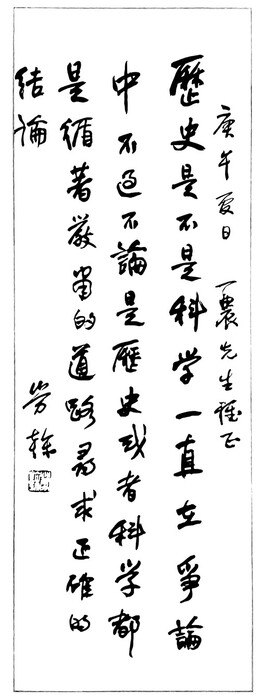 庚午夏日 一農先生雅正
歷史是不是科学一直在爭論
中不过不論是歷史或者科学都
是循著嚴肅的道路尋求正確的
结論
劳榦